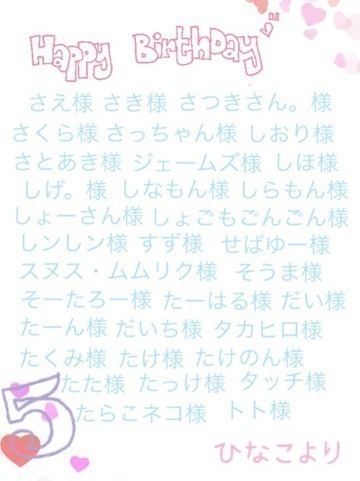 Happy Birthday
さえ様 さき様 さつきさん。様
さくら様 さっちゃん様 しおり様
さとあき様 ジェームズ様 しほ様
しげ。様 しなもん様 しらもん様
しょーさん様 しょごもごんごん様
しンしン様 すず様 せばゆー様
スヌス・ムムリク様 そうま様
そーたろー様 たーはる様 だい様
たーん様 だいち様 タカヒロ様
たくみ様 たけ様 たけのん様
たた様 たっけ様 タッチ様
たらこネコ様 トト様
5
ひなこより